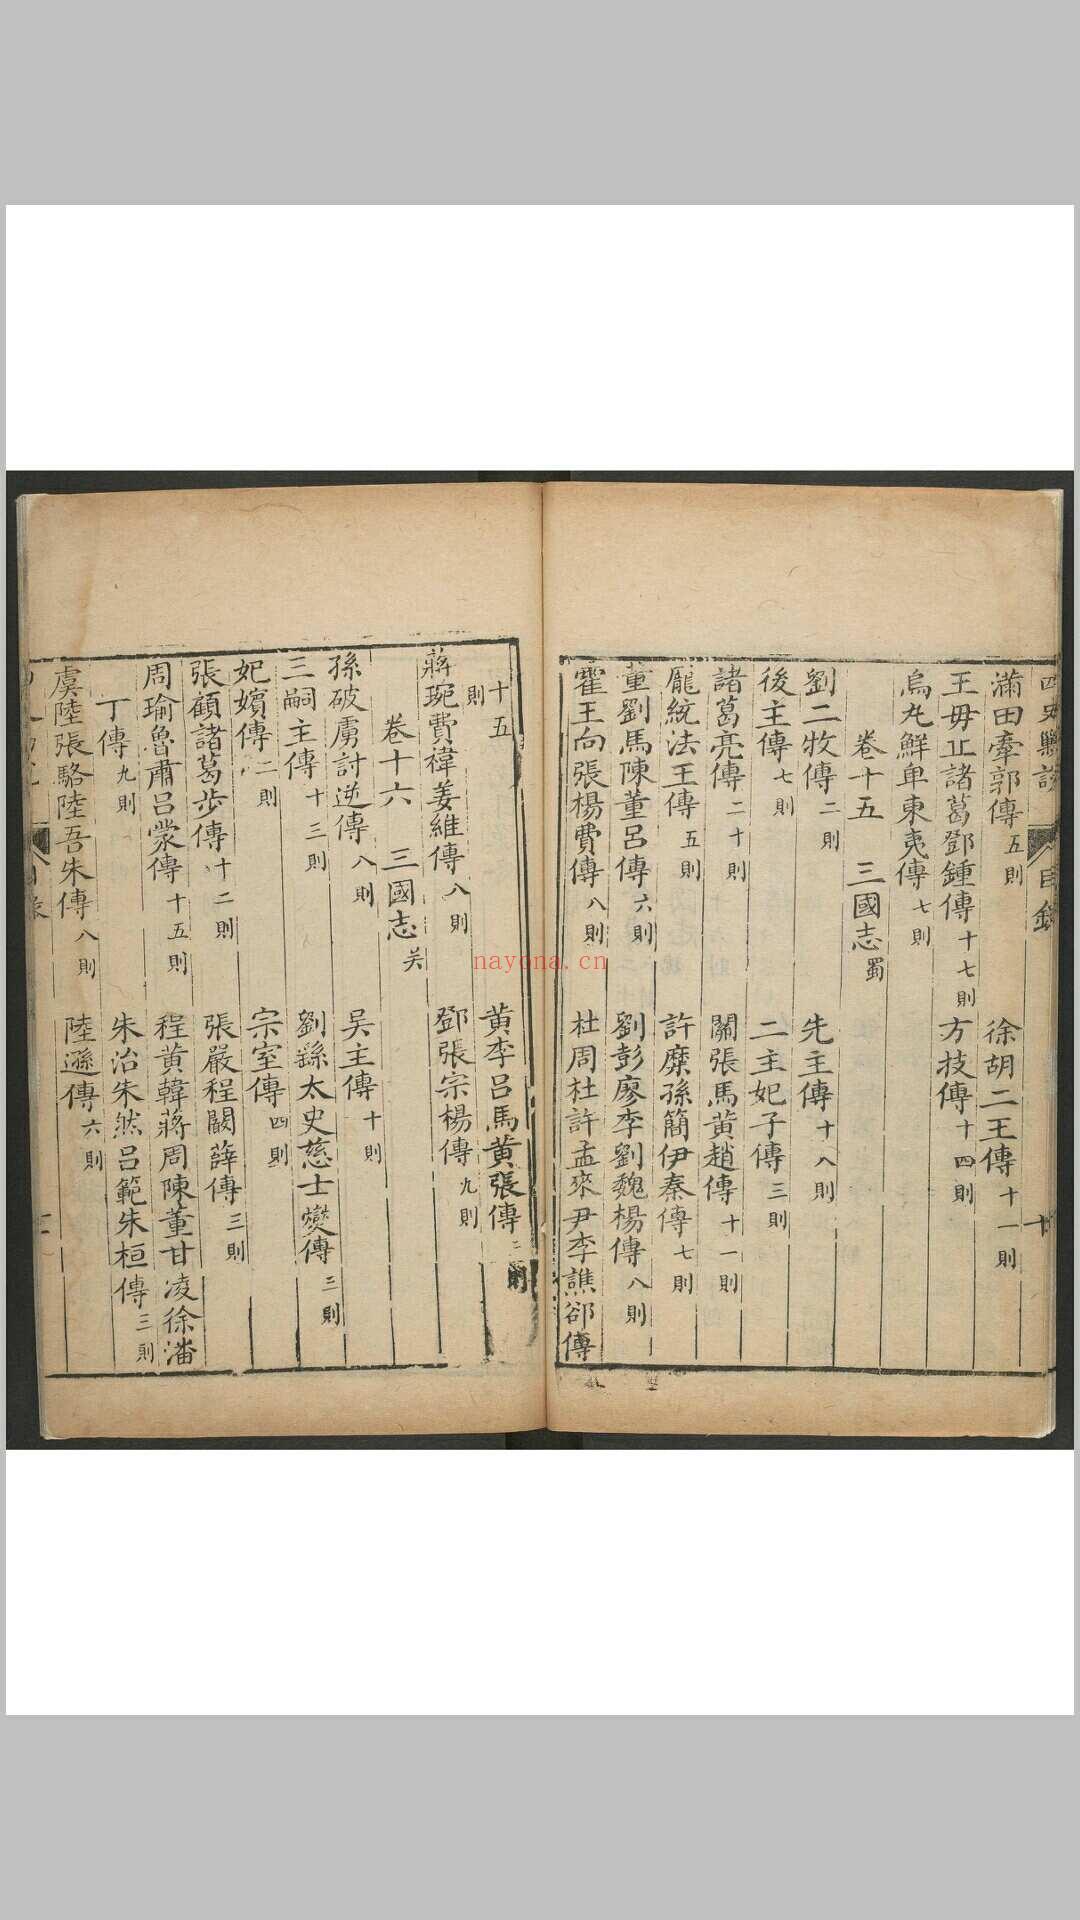 四史勦說 目錄 十
滿田牽郭傳五則 徐胡二王傳十一則
王毋丘諸葛鄧鍾傳十七則 方技傳十四則
烏丸鮮卑東夷傳七則
卷十五 三國志蜀
劉二牧傳二則 先主傳十八則
後主傳七則 二主妃子傳三則
諸葛亮傳二十則 關張馬黃趙傳十一則
龐統法王傳五則 許糜孫簡伊秦傳七則
董劉馬陳董呂傳六則 劉彭廖李劉魏楊傳八則
霍王向張楊費傳八則 杜周杜許孟來尹李譙郤傳
十五則 黃李呂馬黃張傳二則
蔣琬費禕姜維傳八則 鄧張宗楊傳九則
卷十六 三國志吳
孫破虜討逆傳八則 吳主傳十則
三嗣主傳十三則 劉繇太史慈士燮傳三則
妃嬪傳二則 宗室傳四則
張顧諸葛步傳十二則 張嚴程闞薛傳三則
周瑜魯肅呂蒙傳十五則 程黃韓蔣周陳董甘凌徐潘
丁傳九則 朱治朱然呂範朱桓傳三則
虞陸張駱陸吾朱傳八則 陸遜傳六則
nayona.cn